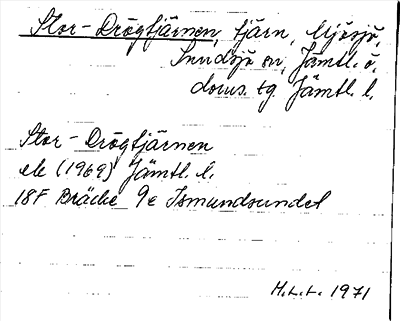 Stor-Drögtjärnen, tjärn, Mjösjö,
Sundsjö sn, Jämtl. ö.
doms. tg. Jämtl. l.
Stor-Drögtjärnen
ek (1969) Jämtl. l.
18F Bräcke 9e Ismundsundet
H.L.t. 1971